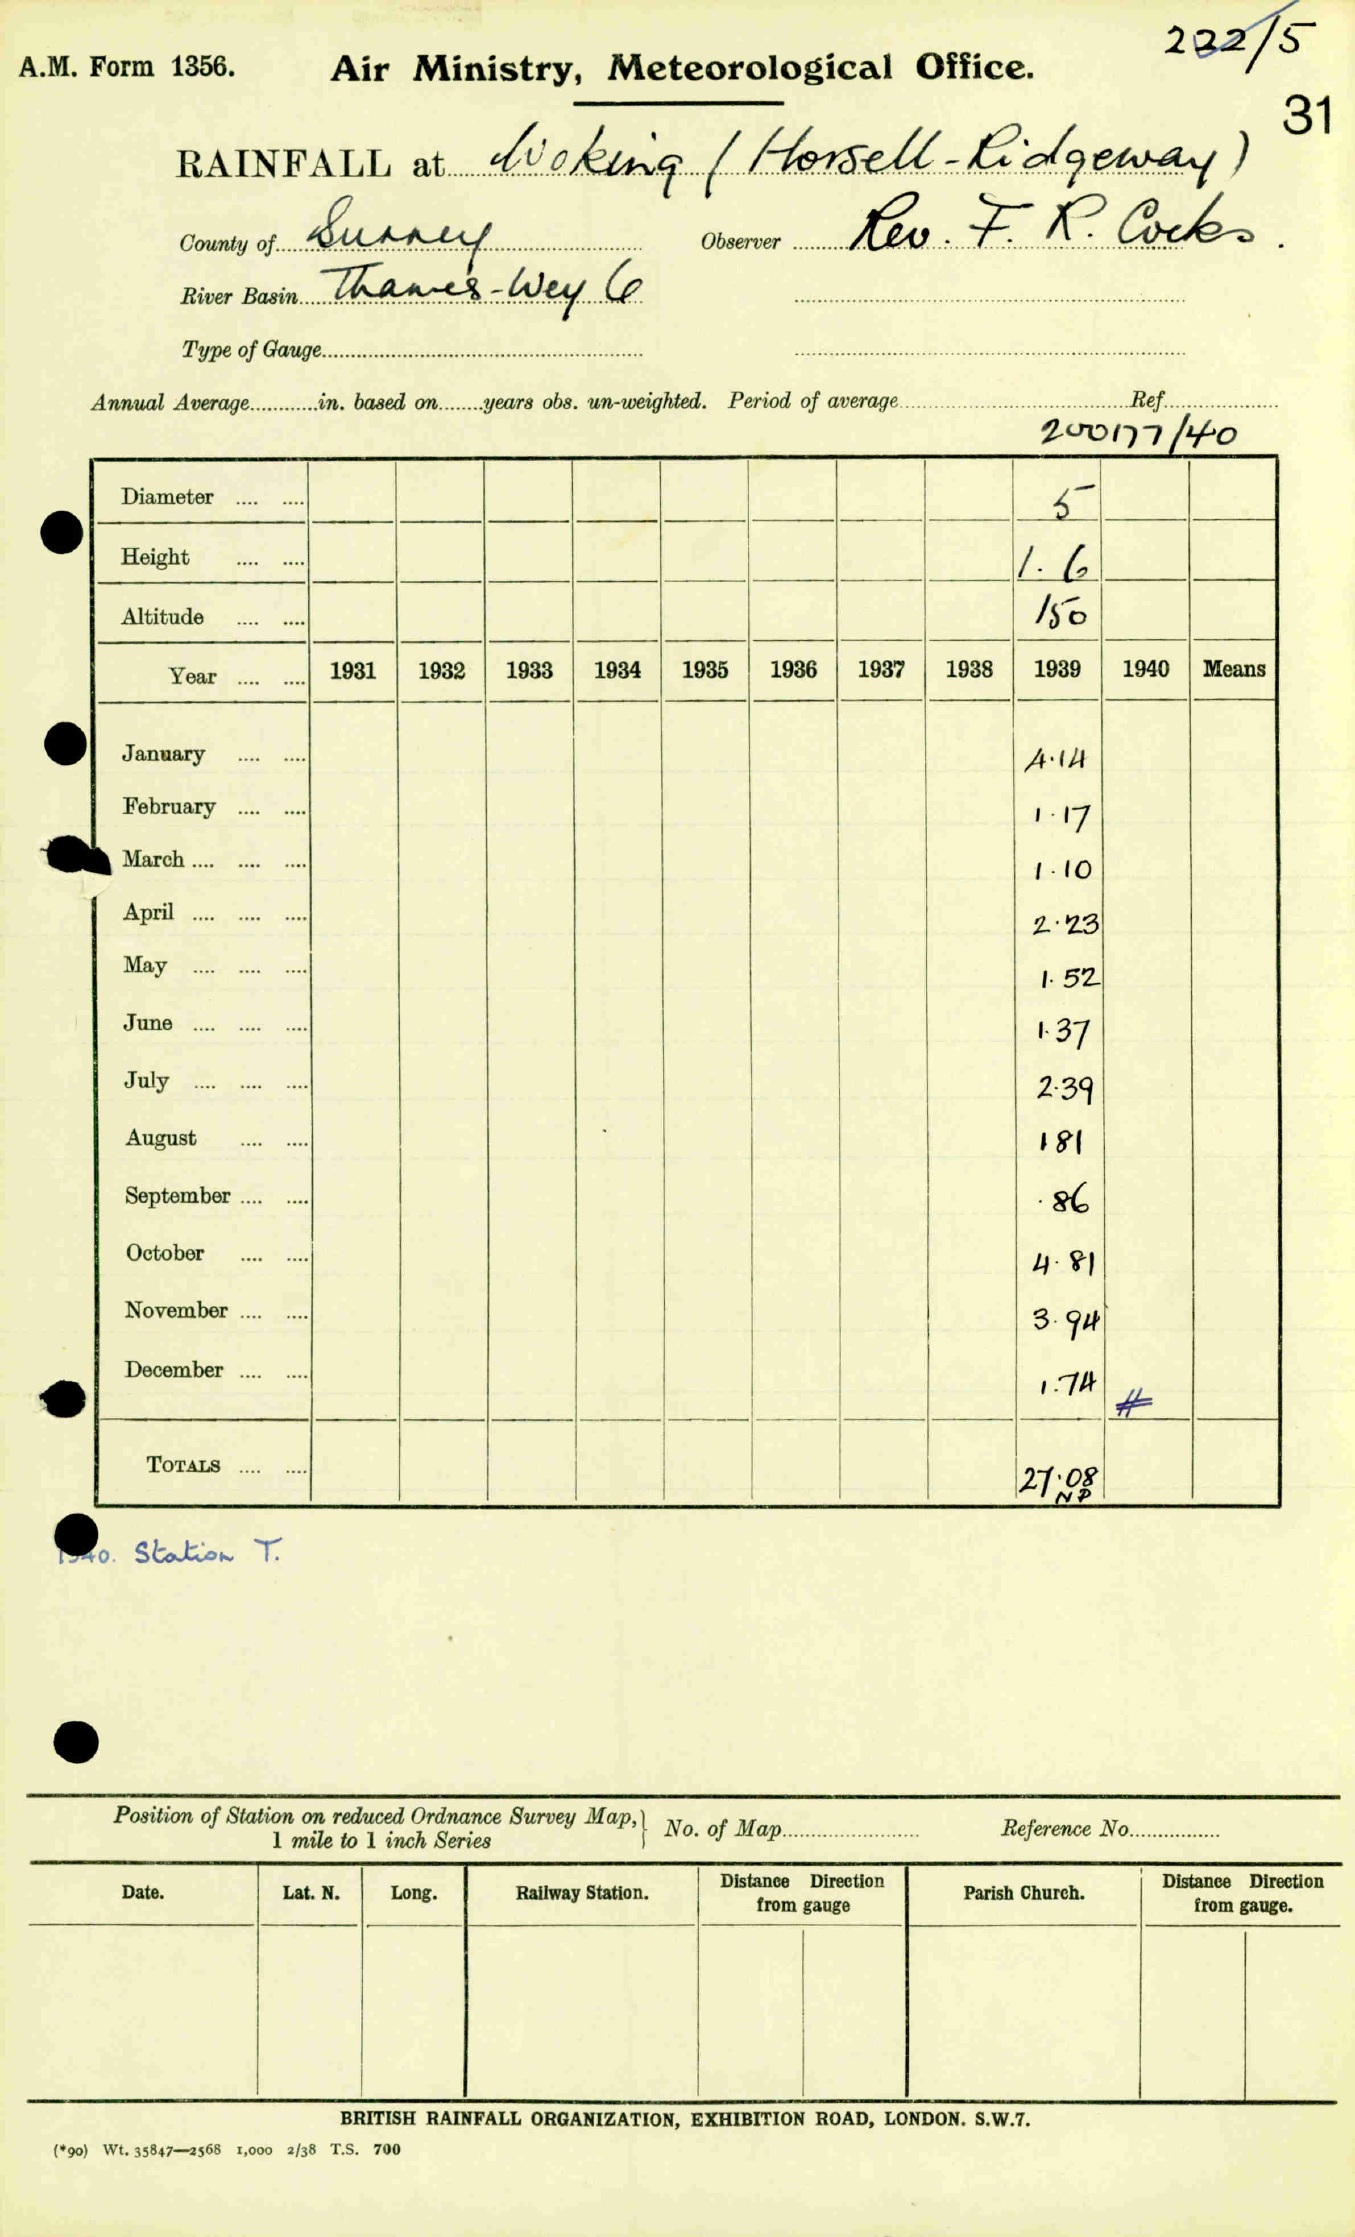 222/5
A.M. Form 1356. Air Ministry, Meteorological Office.
31
RAINFALL at Woking (Horsell-Ridgeway)
County of Surrey Observer Rev. F. R. Cocks.
River Basin Thames-Wey 6
Type of Gauge
Annual Average in. based on years obs. un-weighted. Period of average Ref
200177/40
Diameter .... .... 5
Height .... .... 1.6
Altitude .... .... 150
Year .... .... 1931 1932 1933 1934 1935 1936 1937 1938 1939 1940 Means
January .... .... 4.14
February .... .... 1.17
March .... .... .... 1.10
April .... .... .... 2.23
May .... .... .... 1.52
June .... .... .... 1.37
July .... .... .... 2.39
August .... .... 1 81
September .... .... .86
October .... .... 4.81
November .... .... 3.94
December .... .... 1.74 #
TOTALS .... .... 27.08
NP
1940. Station T.
Position of Station on reduced Ordnance Survey Map, No. of Map Reference No.
1 mile to 1 inch Series
Date. Lat. N. Long. Railway Station. Distance Direction from gauge Parish Church. Distance Direction from gauge.
BRITISH RAINFALL ORGANIZATION, EXHIBITION ROAD, LONDON. S.W.7.
(*90) Wt. 35847—2568 1,000 2/38 T.S. 700